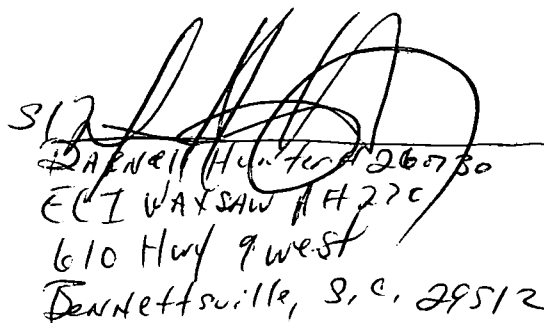 S/
Darnell Hunter # 260730
ECI WAXSAW # 27C
610 Hwy 9 west
Bennettsville, S.C. 29512